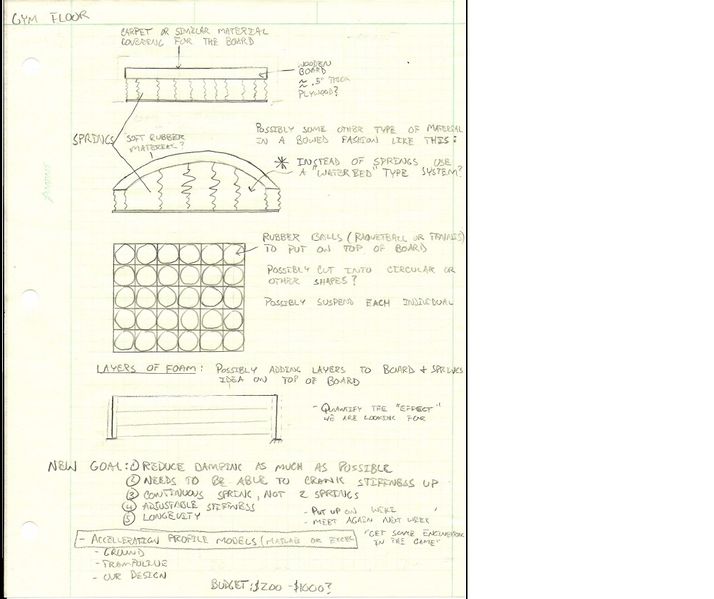 GYM FLOOR
CARPET OR SIMILAR MATERIAL
COVERING FOR THE BOARD
WOODEN
BOARD
≈ .5" THICK
PLYWOOD?
SPRINGS
SOFT RUBBER
MATERIAL?
POSSIBLY SOME OTHER TYPE OF MATERIAL
IN A BOWED FASHION LIKE THIS:
* INSTEAD OF SPRINGS USE
A "WATER BED" TYPE SYSTEM?
RUBBER BALLS (RAQUETBALL OR TENNIS)
TO PUT ON TOP OF BOARD
POSSIBLY CUT INTO CIRCULAR OR
OTHER SHAPES?
POSSIBLY SUSPEND EACH INDIVIDUAL
LAYERS OF FOAM: POSSIBLY ADDING LAYERS TO BOARD & SPRINGS
IDEA ON TOP OF BOARD
- QUANTIFY THE "EFFECT"
WE ARE LOOKING FOR
NEW GOAL: ① REDUCE DAMPING AS MUCH AS POSSIBLE
② NEEDS TO BE ABLE TO CRANK STIFFNESS UP
③ CONTINUOUS SPRING, NOT 2 SPRINGS
④ ADJUSTABLE STIFFNESS
⑤ LONGEVITY
- PUT UP ON WIKI
- MEET AGAIN NEXT WEEK
- ACCELERATION PROFILE MODELS (MATLAB OR EXCEL
"GET SOME ENGINEERING
IN THE GAME"
- GROUND
- TRAMPOLINE
- OUR DESIGN
BUDGET: $200 - $1000?